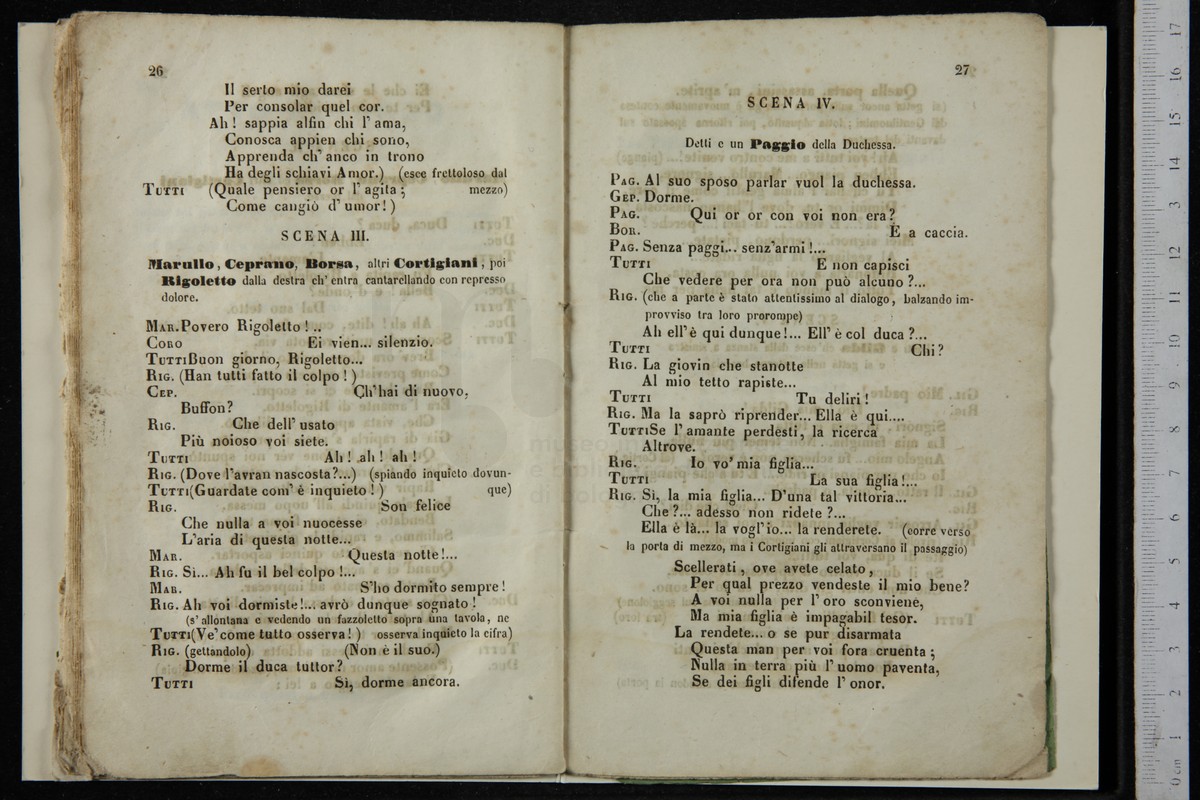 26
Il serto mio darei
Per consolar quel cor.
Ah! sappia alfin chi l'ama,
Conosca appien chi sono,
Apprenda ch'anco in trono
Ha degli schiavi Amor.) (esce frettoloso dal
TUTTI (Quale pensiero or l'agita; mezzo)
Come cangiò d'umor!)
SCENA III.
Marullo, Ceprano, Borsa, altri Cortigiani, poi
Rigoletto dalla destra ch'entra cantarellando con represso
dolore.
MAR. Povero Rigoletto!..
CORO Ei vien... silenzio.
TUTTI Buon giorno, Rigoletto...
RIG. (Han tutti fatto il colpo!)
CEP. Ch'hai di nuovo,
Buffon?
RIG. Che dell'usato
Più noioso voi siete.
TUTTI Ah! ah! ah!
RIG. (Dove l'avran nascosta?...) (spiando inquieto dovun-
TUTTI (Guardate com'é inquieto!) que)
RIG. Son felice
Che nulla a voi nuocesse
L'aria di questa notte...
MAR. Questa notte!...
RIG. Sì... Ah fu il bel colpo!...
MAR. S'ho dormito sempre!
RIG. Ah voi dormiste!... avrò dunque sognato!
(s'allontana e vedendo un fazzoletto sopra una tavola, ne
TUTTI (Ve' come tutto osserva!) osserva inquieto la cifra)
RIG. (gettandolo) (Non è il suo.)
Dorme il duca tuttor?
TUTTI Sì, dorme ancora.
27
SCENA IV.
Detti e un Paggio della Duchessa.
PAG. Al suo sposo parlar vuol la duchessa.
GEP. Dorme.
PAG. Qui or or con voi non era?
BOR. È a caccia.
PAG. Senza paggi... senz'armi!...
TUTTI E non capisci
Che vedere per ora non può alcuno?...
RIG. (che a parte è stato attentissimo al dialogo, balzando im-
provviso tra loro prorompe)
Ah ell'è qui dunque!... Ell'è col duca?...
TUTTI Chi?
RIG. La giovin che stanotte
Al mio tetto rapiste...
TUTTI Tu deliri!
RIG. Ma la saprò riprender... Ella è qui....
TUTTI Se l'amante perdesti, la ricerca
Altrove.
RIG. Io vo' mia figlia...
TUTTI La sua figlia!...
RIG. Sì, la mia figlia... D'una tal vittoria...
Che?... adesso non ridete?...
Ella é là... la vogl'io... la renderete. (corre verso
la porta di mezzo, ma i Cortigiani gli attraversano il passaggio)
Scellerati, ove avete celato,
Per qual prezzo vendeste il mio bene?
A voi nulla per l'oro sconviene,
Ma mia figlia è impagabil tesor.
La rendete... o se pur disarmata
Questa man per voi fora cruenta;
Nulla in terra più l'uomo paventa,
Se dei figli difende l'onor.